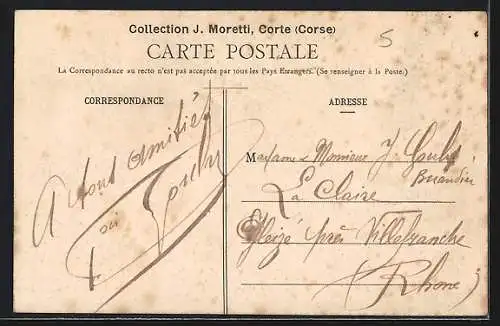 Collection J. Moretti, Corte (Corse)
5
CARTE POSTALE
La Correspondance au recto n'est pas acceptée par tous les Pays Etrangers. (Se renseigner à la Poste.)
CORRESPONDANCE
A tous amitiés
ADRESSE
Madame & Monsieur J.
La Claire
Gleizé près Villefranche
Rhône